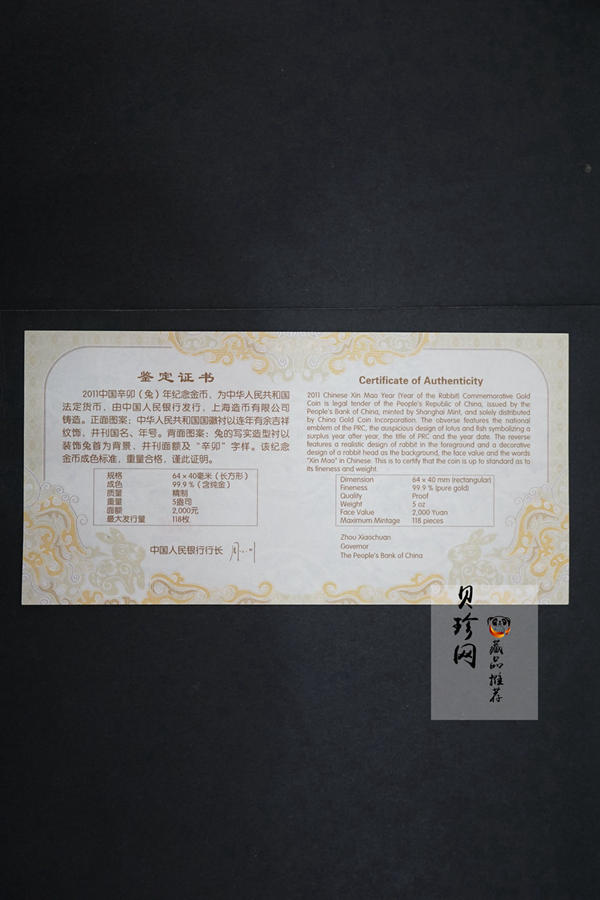 鉴定证书
2011中国辛卯（兔）年纪念金币，为中华人民共和国
法定货币，由中国人民银行发行，上海造币有限公司
铸造。正面图案：中华人民共和国国徽衬以连年有余吉祥
纹饰，并刊国名、年号。背面图案：兔的写实造型衬以
装饰兔首为背景，并刊面额及“辛卯”字样。该纪念
金币成色标准，重量合格，谨此证明。
规格 64×40毫米（长方形）
成色 99.9％（含纯金）
质量 精制
重量 5盎司
面额 2,000元
最大发行量 118枚
中国人民银行行长
Certificate of Authenticity
2011 Chinese Xin Mao Year (Year of the Rabbit) Commemorative Gold
Coin is legal tender of the People's Republic of China, issued by the
People's Bank of China, minted by Shanghai Mint, and solely distributed
by China Gold Coin Incorporation. The obverse features the national
emblem of the PRC, the auspicious design of lotus and fish symbolizing a
surplus year after year, the title of PRC and the year date. The reverse
features a realistic design of rabbit in the foreground and a decorative
design of a rabbit head as the background, the face value and the words
"Xin Mao" in Chinese. This is to certify that the coin is up to standard as to
its fineness and weight.
Dimension 64 × 40 mm (rectangular)
Fineness 99.9 % (pure gold)
Quality Proof
Weight 5 oz
Face Value 2,000 Yuan
Maximum Mintage 118 pieces
Zhou Xiaochuan
Governor
The People's Bank of China
贝珍网
藏品推荐